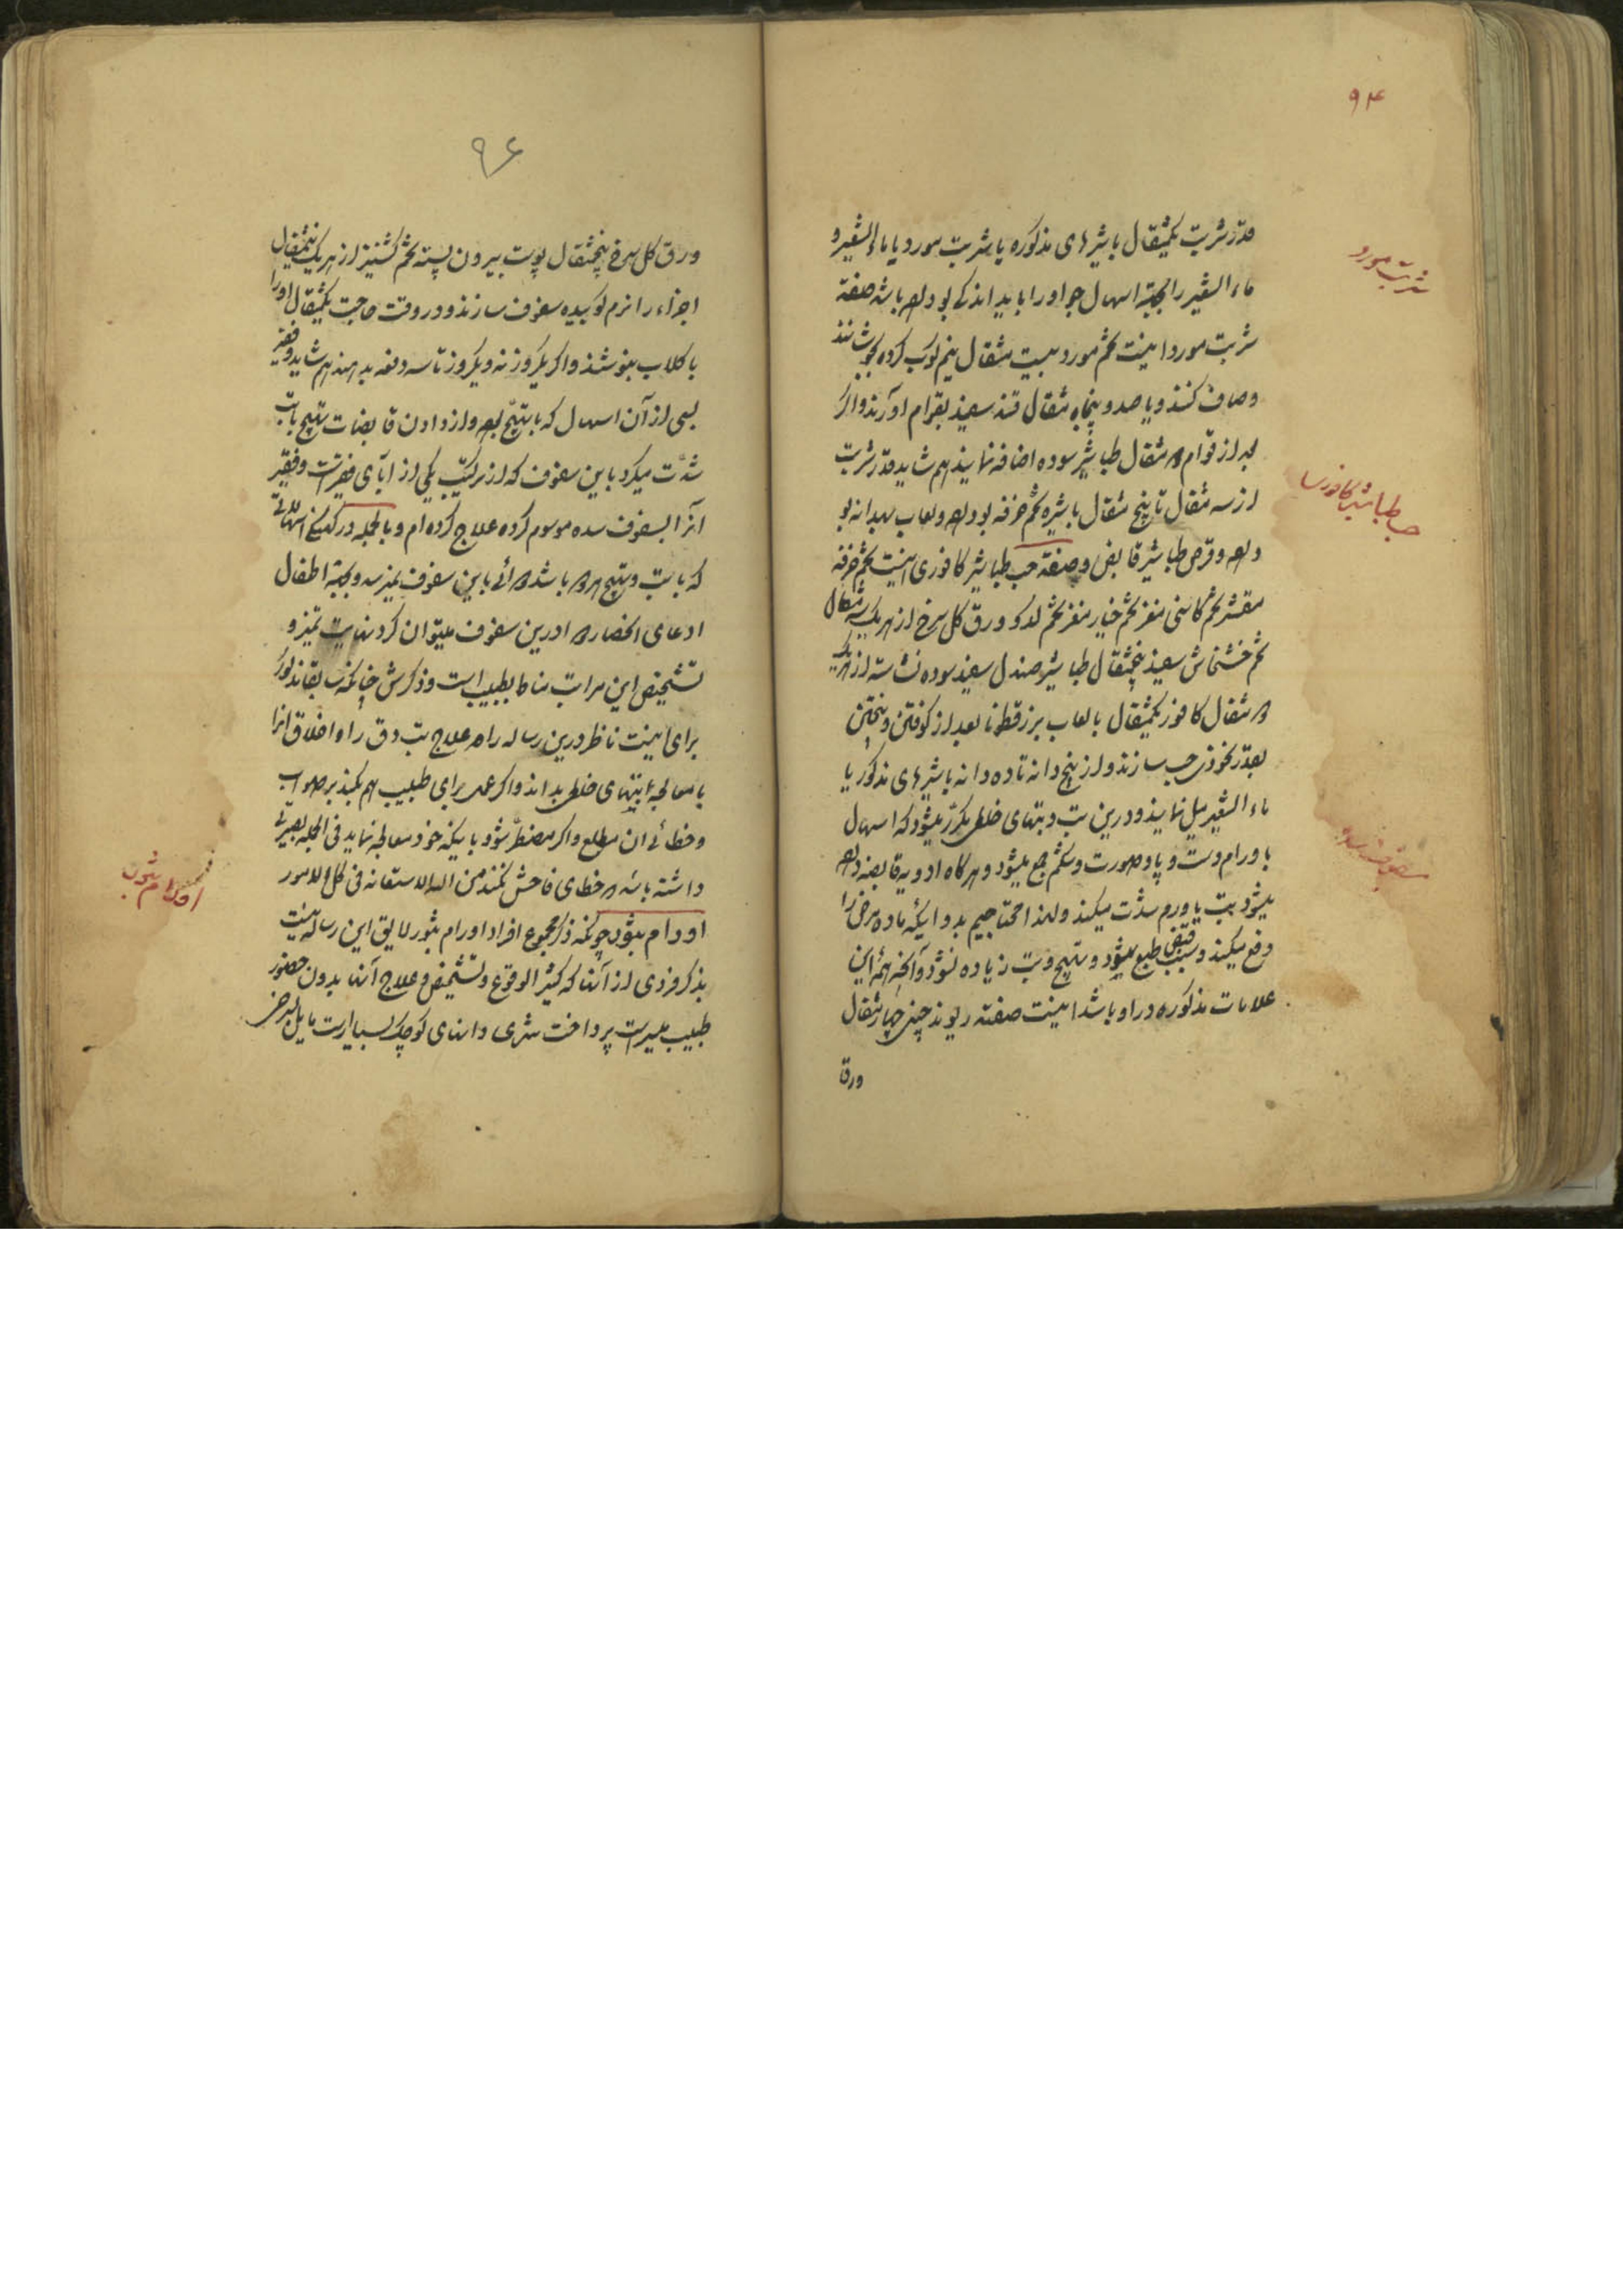 ۹۴
قدر شربت یکمثقال باشیرهای مذکوره یا شربت مورد یا ماء الشعیر و
ماء الشعیر را بجهة اسهال جو او را باید اندکی بو داده باشد صفة
شربت مورد اینست تخم مورد بیست مثقال نیم کوب کرده بجوشانند
وصاف کنند و با صد و پنجاه مثقال قند سفید بقوام آورند و اگر
بعد از قوام دو مثقال طباشیر سوده اضافه نمایند هم شاید قدر شربت
از سه مثقال تا پنج مثقال باشیره تخم خرفه بو داده ولعاب بهدانه بو
داده و قرص طباشیر قابض وصفة حب طباشیر کافوری اینست تخم خرفه
مقشر تخم کاسنی مغز تخم خیار مغز تخم کدو ورق کل سرخ از هر یک سه مثقال
تخم خشخاش سفید پنجمثقال طباشیر صندل سفید سوده نشاسته از هر یک
دو مثقال کافور یکمثقال بالعاب بزرقطونا بعد از کوفتن و بیختن
بقدر نخودی حب سازند و از پنج دانه تا ده دانه باشیرهای مذکور یا
ماء الشعیر میل نمایند و درین تب و تبهای خلطی مکرر میشود که اسهال
با ورام دست و پا و صورت و شکم جمع میشود و هرکاه ادویه قابضه داده
میشود تب یا ورم شدت میکند ولهذا محتاجیم بدوائیکه ماده مرض را
دفع میکند و سبب قبض طبع میشود و تهیج و تب زیاده نشود و آنچه همه این
علامات مذکوره در او باشد اینست صفته ریوند چینی چهار مثقال
ورق
شربت مورد
حب طباشیر کافوری
سفوف سده
۹۶
ورق کل سرخ پنجمثقال پوست بیرون پسته تخم کشنیز از هر یک پنجمثقال
اجزاء را نرم کوبیده سفوف سازند و در وقت حاجت یکمثقال او را
با کلاب بنوشند و اگر یکروز نه و یکروز تا سه دفعه بدهند هم شاید و فقیر
بسی از آن اسهال که با تهیج بود و از دادن قابضات تهیج یا تب
شدت میکرد باین سفوف که از ترکیب یکی از آبای فقیر است و فقیر
آنرا بسفوف سده موسوم کرده علاج کرده ام و بالجمله در کل اسهالی
که با تب و تهیج هر دو باشد دوائی باین سفوف نمیرسد و بجهة اطفال
ادعای انحصار دوا درین سفوف میتوان کرد نهایت تمیز و
تشخیص این مراتب مناط بطبیب است و ذکرش چنانکه سابقا مذکور شد
برای اینست ناظر درین رساله راه علاج تب دق را و اخلاق آنرا
با معالجه تبهای خلطی بداند و اگر عمل برای طبیب هم بکند بر صواب
و خطای آن مطلع و اگر مضطر شود باینکه خود معالجه نماید فی الجمله بصیرتی
داشته باشد و خطای فاحش نکند من الله الاستعانه فی کل الامور
اورام بثور چونکه ذکر مجموع افراد اورام بثور لایق این رساله نیست
بذکر فردی از آنها که کثیر الوقوع و تشخیص و علاج آنها بدون حضور
طبیب میسر است پرداخت شری دانهای کوچک بسیار است مایل بسرخی
اورام بثور